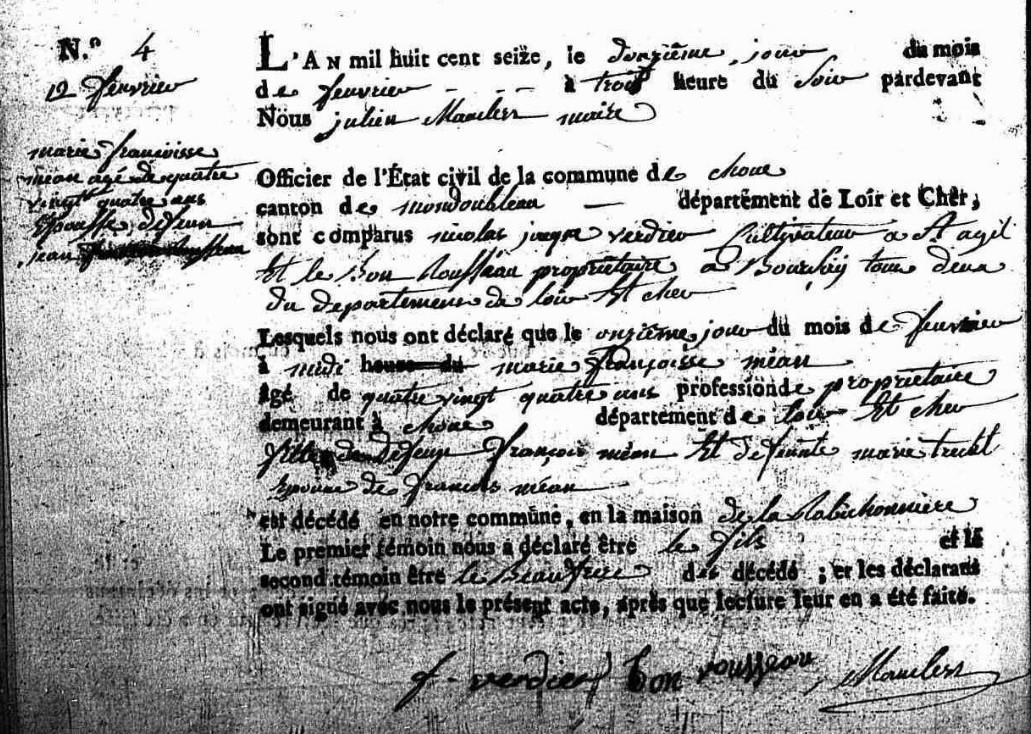 N.º 4
12 feuvrier
marie francoisse
mean agé de quatre
vingt quatre ans
Epousse defeun
jean
L'AN mil huit cent seize, le douzième jour du mois
de feuvrier - - - à trois heure du soir pardevant
Nous julien maire
Officier de l'État civil de la commune de choue
canton de mondoubleau — département de Loir et Cher,
sont comparus nicolas verdier Cultivateur a St agil
Et le Bon Rousseau propriétaire a tous deux
du departement de loir Et cher
Lesquels nous ont déclaré que le onzième jour du mois de feuvrier
à midi heure du marie françoisse méan
âgé de quatre vingt quatre ans profession de proprietaire
demeurant à choue département de loir Et cher
fille de defeun françois méan Et defeunte marie
Epouse de francois méan
est décédé en notre commune, en la maison de la
Le premier témoin nous a déclaré être le fils et le
second témoin être le Beaufrere des décédé ; et les déclarans
ont signé avec nous le présent acte, après que lecture leur en a été faite.
f - verdier Bon rousseau